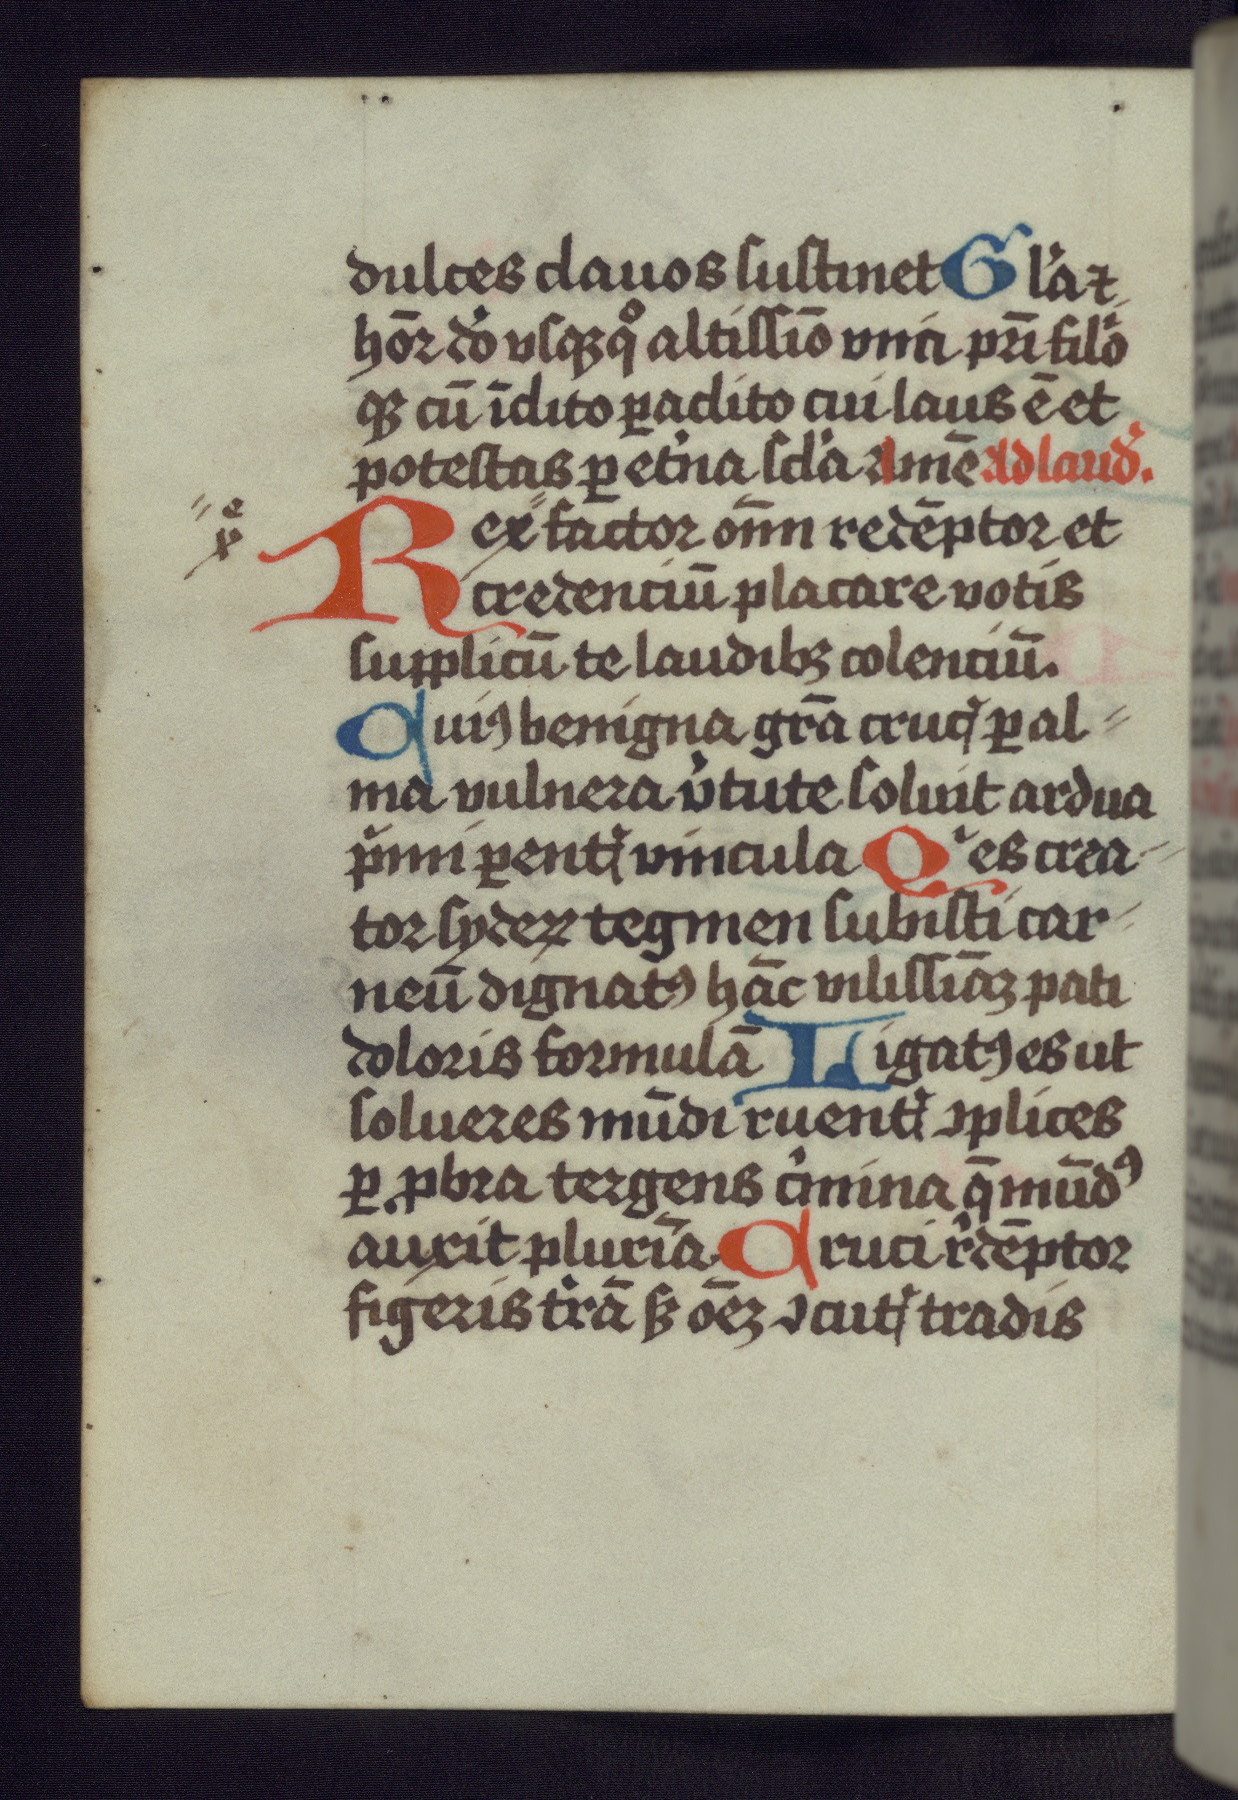 dulces clauos sustinet Gl'a ⁊
hōr dō usq̢ qͦ altissīo vnīci pr̄i filō
q̢ cū īclito ꝑaclito cui laus ē et
potestas ꝑ et'na scl'a amē Ad laud'.
Rex factor om̄n redēptor et
xp̄e
credenciū placare votis
supplicū te laudib̢ colenciū.
Cuiꝯ benigna gr̄a crucꝭ ꝑ al⸗
ma vulnera v'tute soluit ardua
p'mi ꝑentꝭ vincula Qⁱ es crea⸗
tor syderꝝ tegmen subisti car⸗
neū dignatꝯ hāc vilissīaꝫ pati
doloris formulā Ligatꝯ es ut
solueres mūdi ruentꝭ ꝯplices
ꝑ ꝓbra tergens c'mina q̄ mūdꝰ
auxit plurīa Cruci r'dēptor
figeris t'rā sꝫ ōeꝫ ꝯcutꝭ tradis